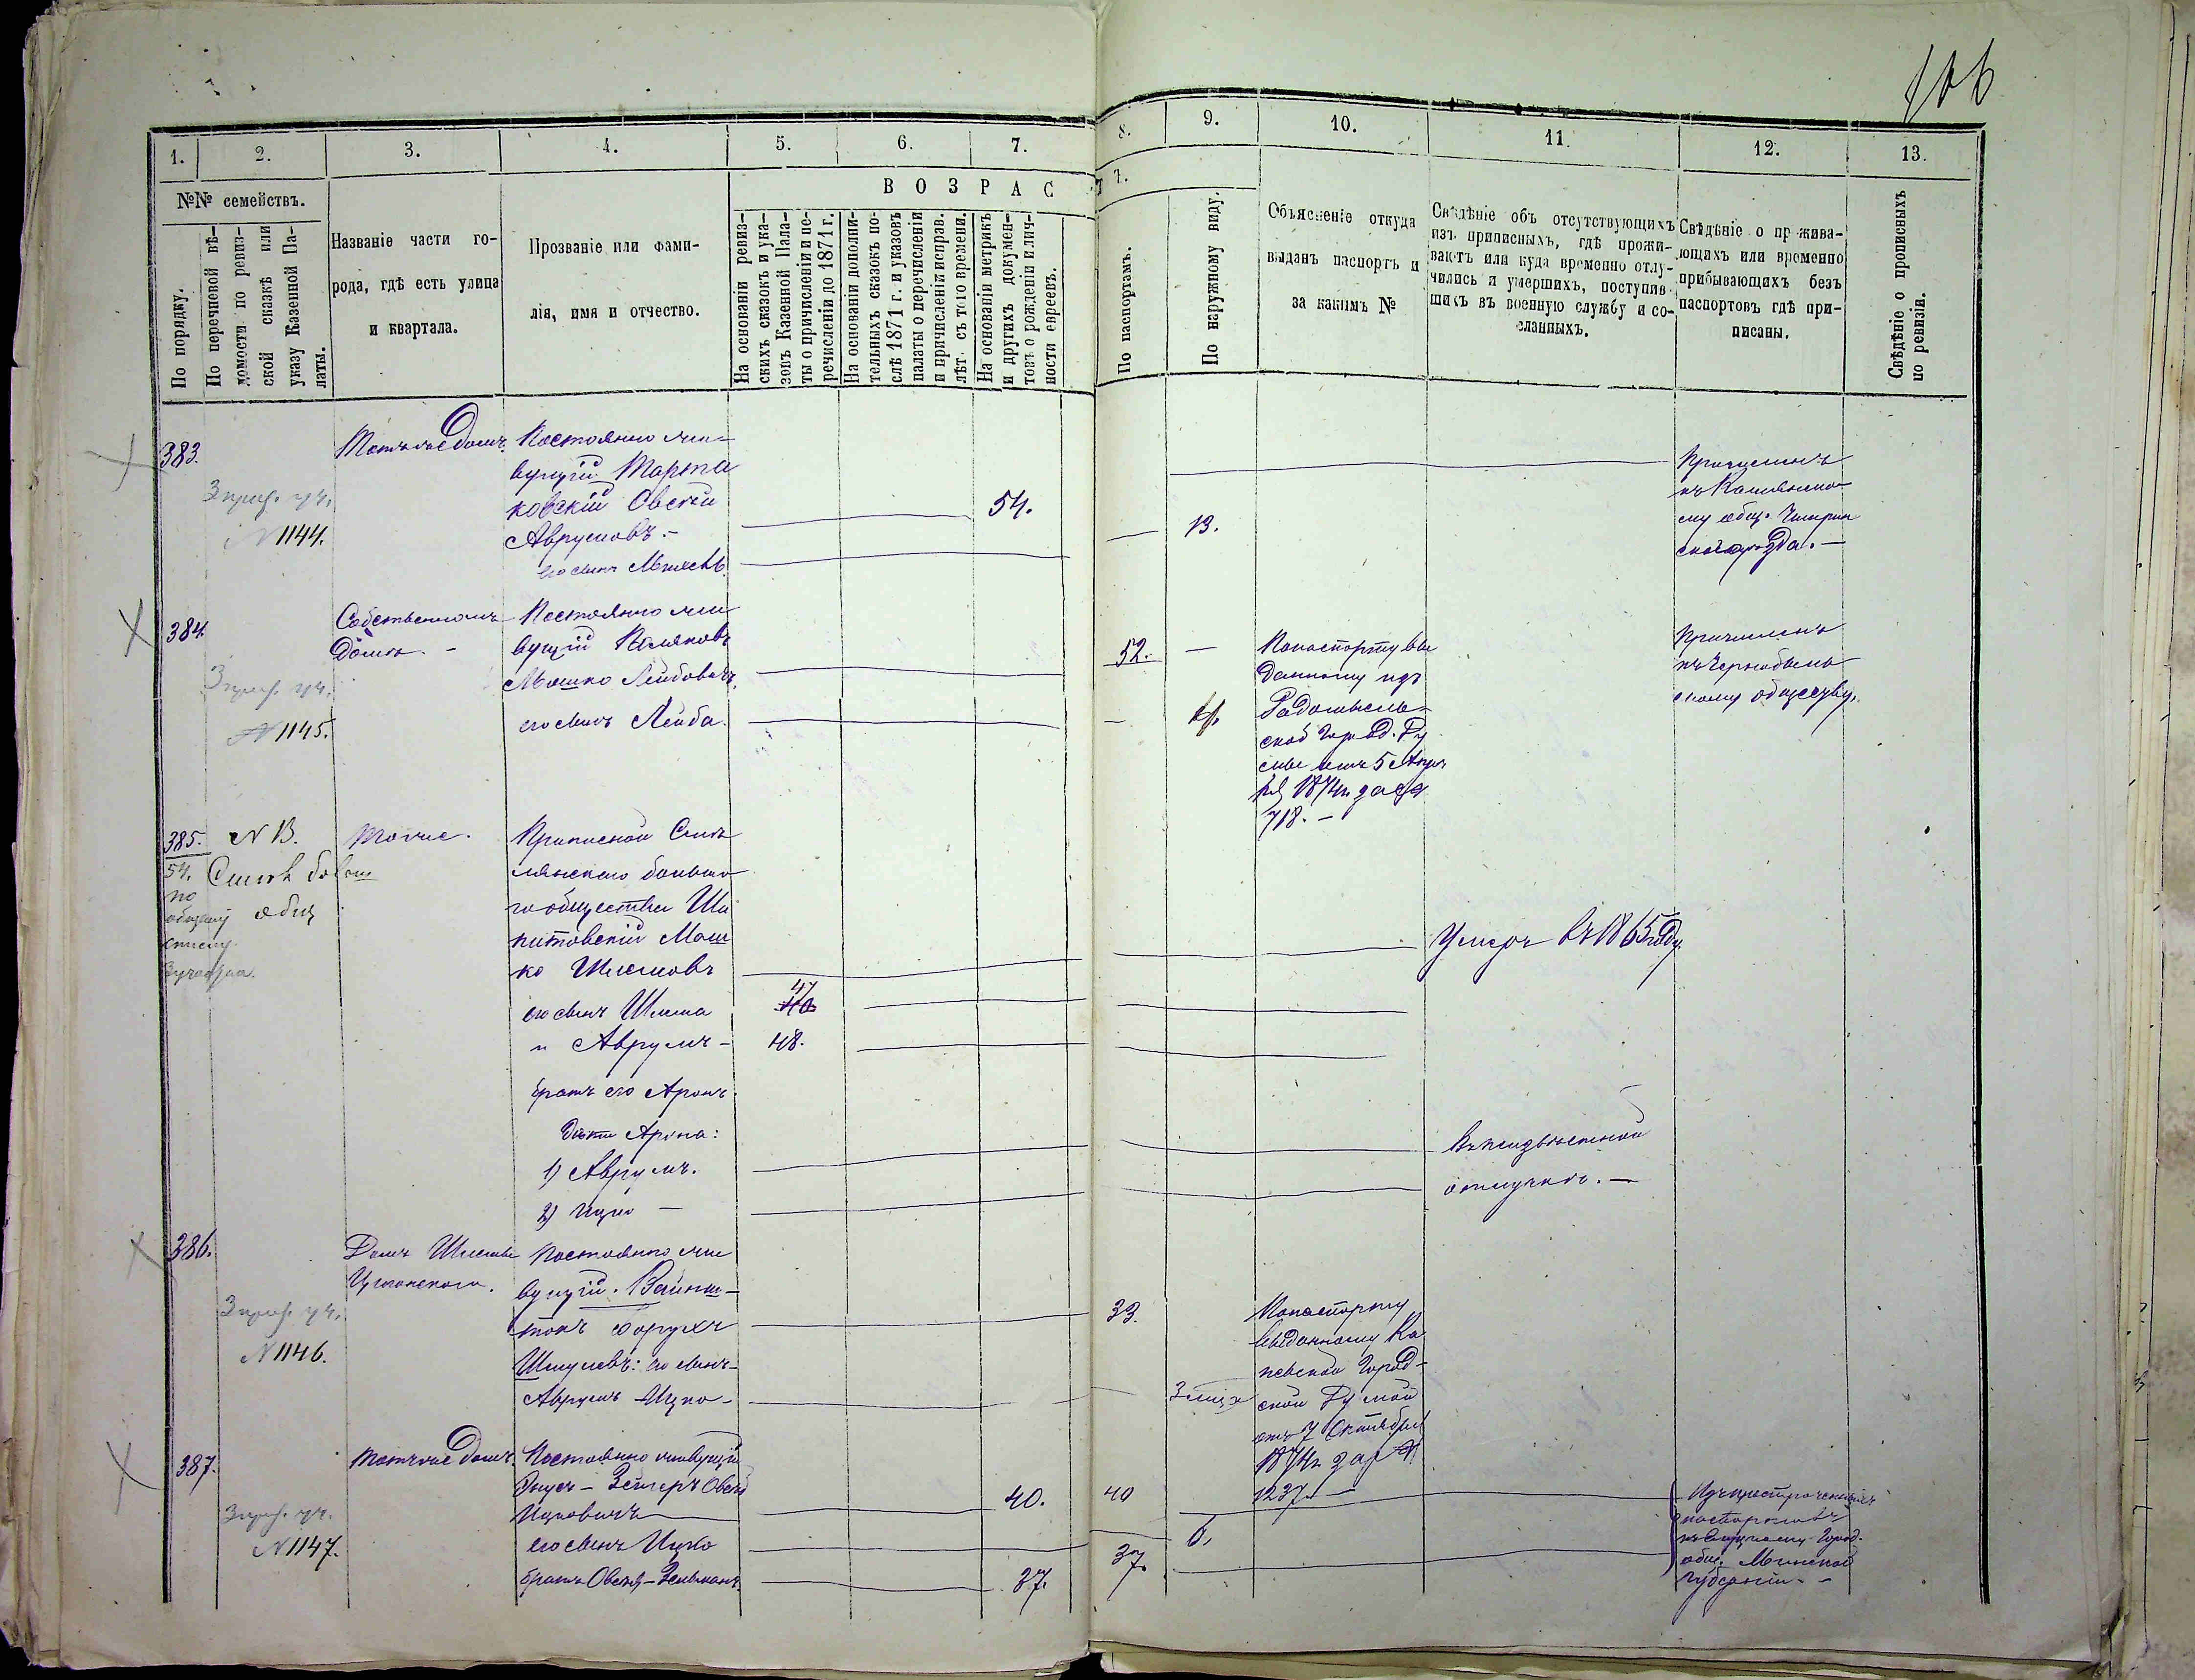 106
1.
2.
3.
4.
5.
6.
7.
8.
9.
10.
11.
12.
13.
№№ семействъ.
По порядку.
По перечневой вѣ-
домости по ревиз-
ской сказкѣ или
указу Казенной Па-
латы.
Названіе части го-
рода, гдѣ есть улица
и квартала.
Прозваніе или фами-
лія, имя и отчество.
ВОЗРАСТ
На основаніи ревиз-
скихъ сказокъ и ука-
зовъ Казенной Пала-
ты о причисленіи и пе-
речисленіи до 1871 г.
На основаніи дополни-
тельныхъ сказокъ по-
слѣ 1871 г. и указовъ
палаты о перечисленіи
и причисленіи исправ.
лѣт. съ того времени.
На основаніи метрикъ
и другихъ докумен-
товъ о рожденіи и лич-
ности евреевъ.
По паспортамъ.
По наружному виду.
Объясненіе откуда
выданъ паспортъ и
за какимъ №
Свѣдѣніе объ отсутствующихъ
изъ приписныхъ, гдѣ прожи-
ваютъ или куда временно отлу-
чились и умершихъ, поступив-
шихъ въ военную службу и со-
сланныхъ.
Свѣдѣніе о прожива-
ющихъ или временно
прибывающихъ безъ
паспортовъ гдѣ при-
писаны.
Свѣдѣніе о прописныхъ
по ревизіи.
383.
3 приз. уч.
№ 1144.
Тотъ же домъ.
Постоянно жи-
вущій Марта
ковскій Овсѣй
Аврумовъ.-
его сынъ
54.
13.
Причисленъ
къ
му общ. Чигрин
скаго уѣзда.-
384
3 приз. уч.
№ 1145.
Собственномъ
домѣ.-
Постоянно жи
вущій Поляковъ
Мошко Лейбовичъ.
его сынъ Лейба.
52.
По паспорту вы
данному изъ
Радомысль-
ской Город. Ду
мы отъ 5 Апрѣ
ля 1874 г. за №
718.-
Причисленъ
къ Чернобыль
скому обществу.
385.
54.
по
общему
списку
3 участка.
№ 13.
общ
Тоже.
Приписной Смѣ
лянскаго больша
го общества Ша
питовскій Мош
ко Шлемовъ
его сынъ Шлема
47
40
" Аврумъ -
48.
братъ его Аронъ.
дѣти Арона:
1) Аврумъ.
2) Ицко -
Умеръ въ 1865 году.
Въ неизвѣстной
отлучкѣ.-
386.
3 приз. уч.
№ 1146.
Домъ Шлемы
Постоянно жи
вущій. Вайнш-
токъ Борухъ
Шмулевъ: его сынъ-
Аврумъ-Ицко-
33.
3 мѣс.
По паспорту
выданному Ка
невской Город-
ской Думой
отъ 7 Октября
1874 г. за №
1237.-
387.
3 приз. уч.
№ 1147.
Тотъ же домъ.
Постоянно живущій
Овсѣй
Ицковичъ
40.
40
его сынъ Ицко
6.
братъ Овсѣя-Зельманъ.
37.
37.
Изъ просроченныхъ
паспортовъ
Город.
общ. Минской
губерніи.-